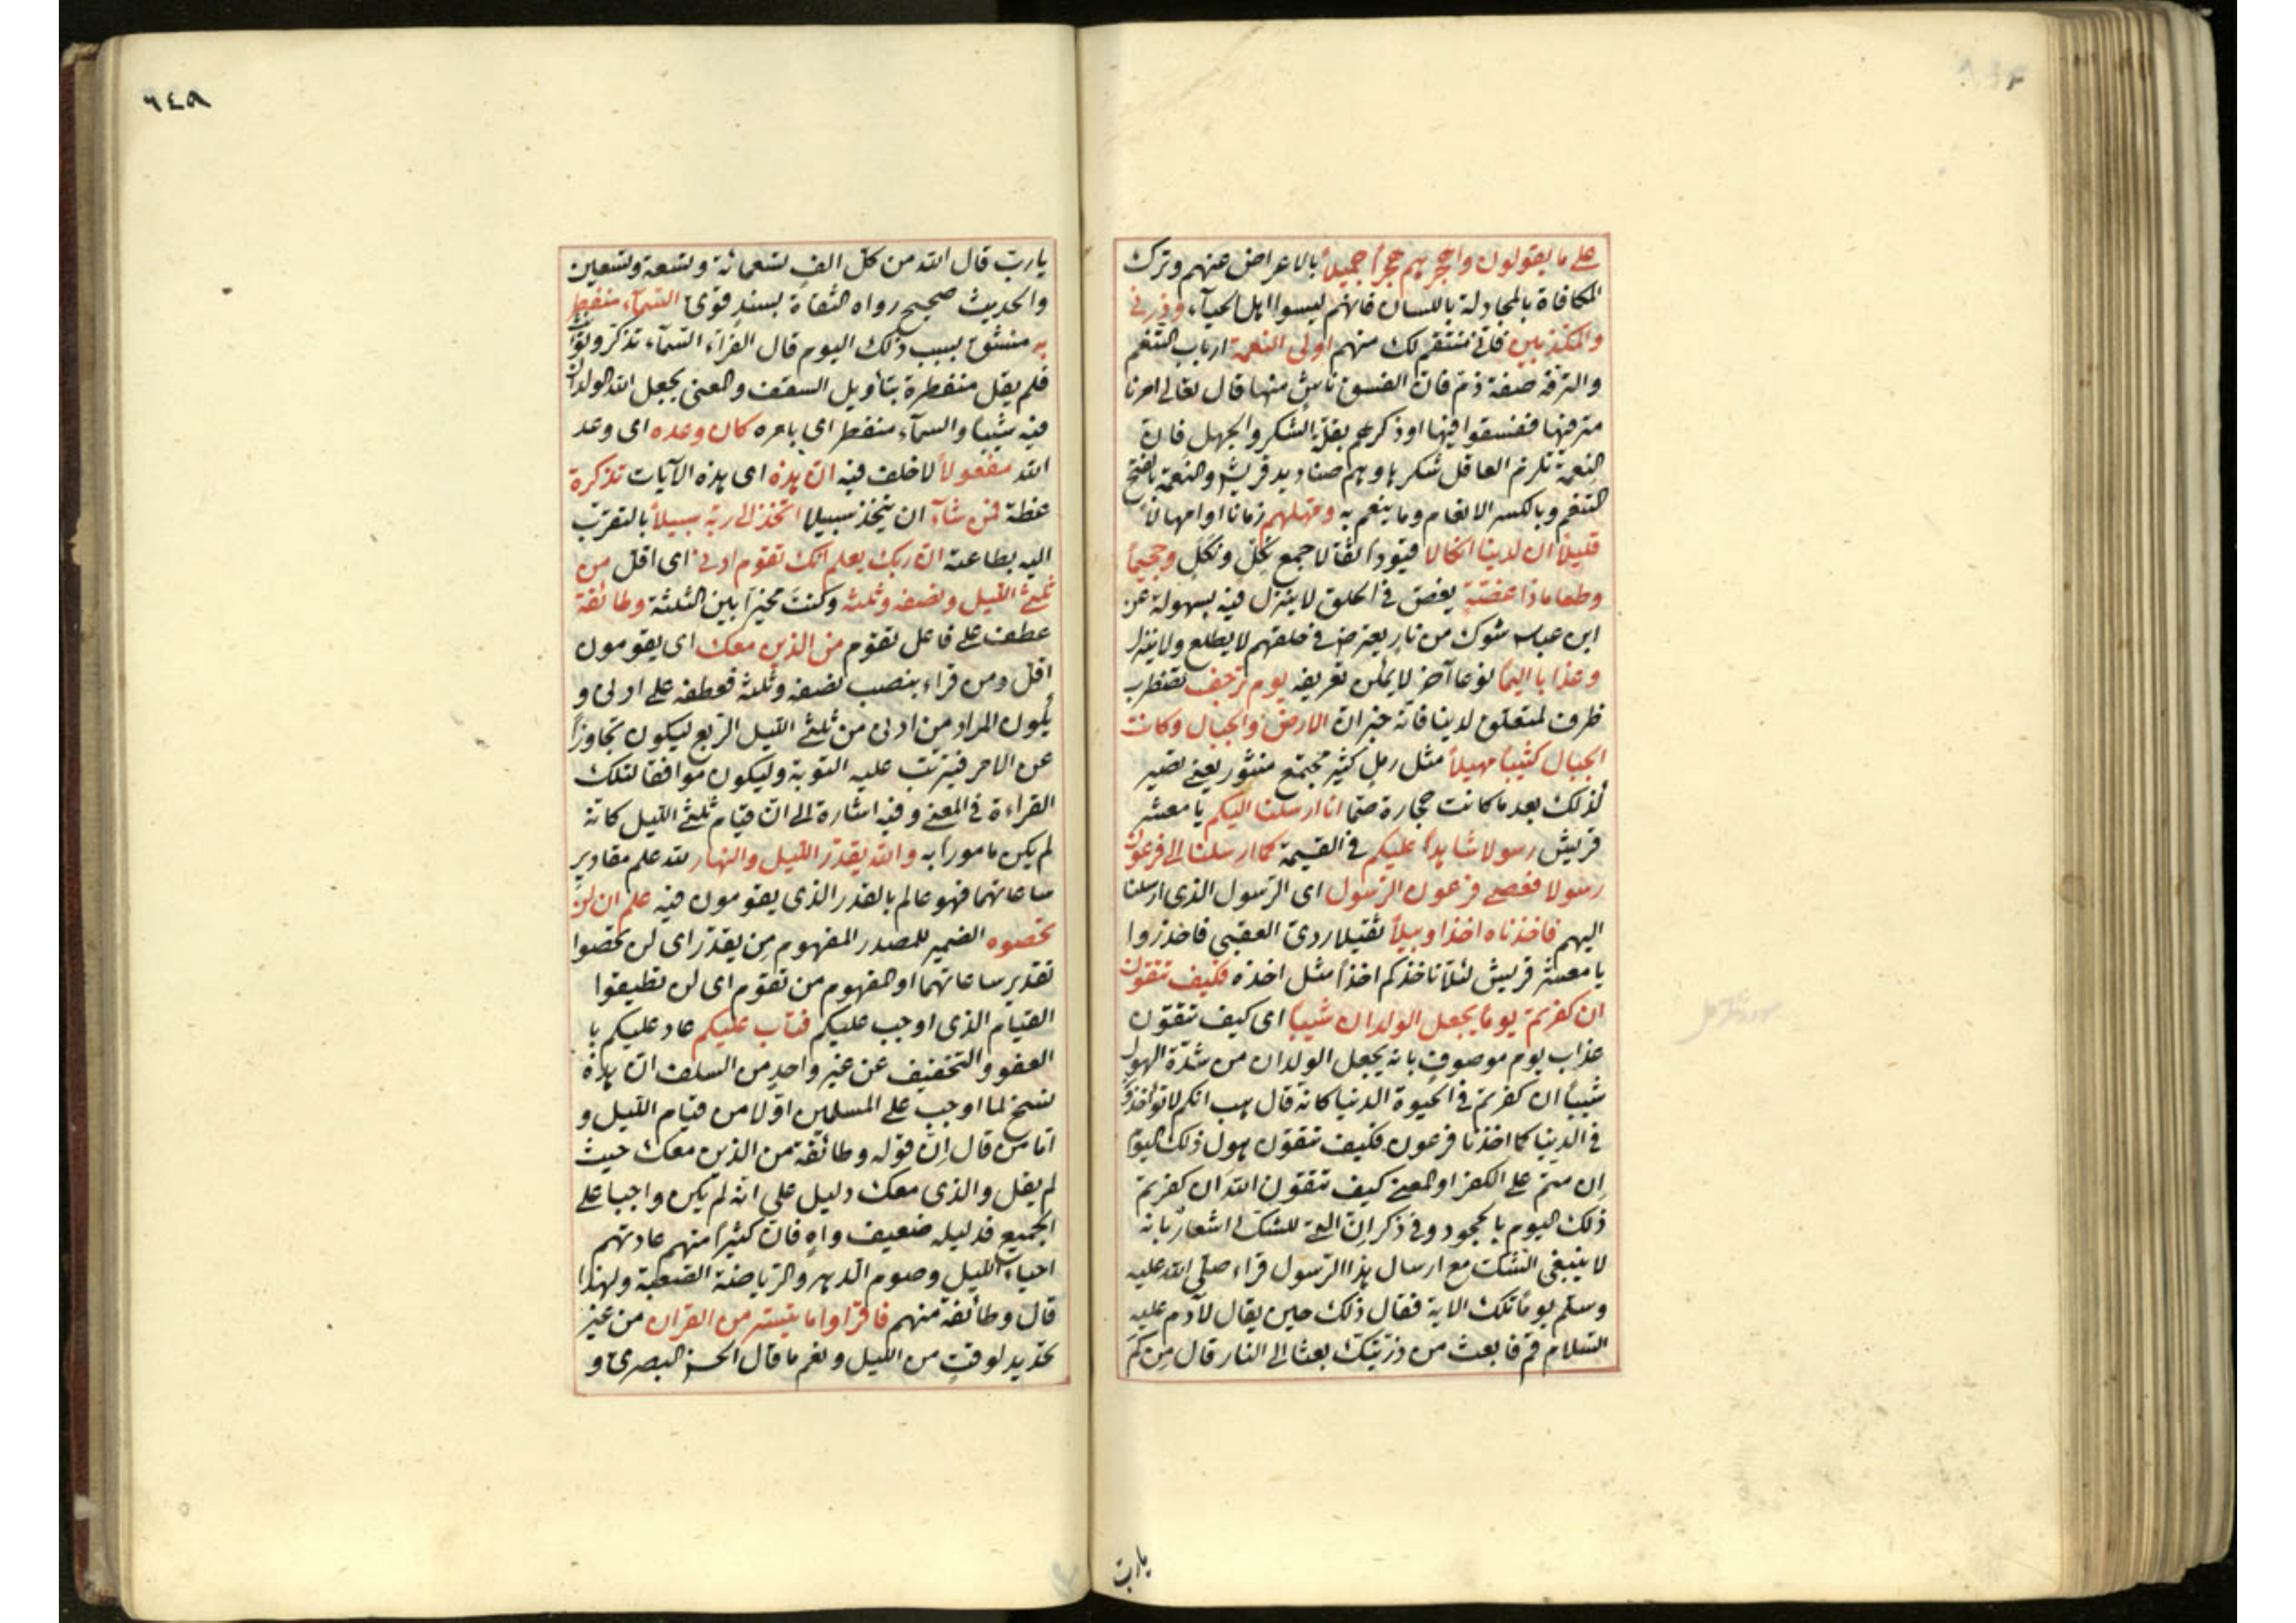 على ما يقولون واهجرهم هجراً جميلاً بالاعراض عنهم وترك
المكافاة بالمجادلة باللسان فانهم ليسوا اهل الحيآء وذرنى
والمكذبين فانى منتقم لك منهم اولى النعمة ارباب التنعم
والترفه صفة ذم فان الفسق ناش منها قال تعالى امرنا
مترفيها ففسقوا فيها او ذكرهم بقلة الشكر والجهل فان
النعمة تلزم العاقل شكرها وهم صناديد قريش والنعمة بالفتح
التنعم وبالكسر الانعام وما ينعم به ومهلهم زمانا او امهالاً
قليلاً ان لدينا انكالا قيوداً ثقالا جمع نِكل ونَكل وجحيماً
وطعاما ذا غصة يغص فى الحلق لا ينزل فيه بسهولة عن
ابن عباس شوك من نار يعترض فى حلقهم لا يطلع ولا ينزل
وعذابا اليماً نوعا آخر لا يمكن تعريفه يوم ترجف تضطرب
ظرف لمتعلق لدينا فانه خبر ان الارض والجبال وكانت
الجبال كثيباً مهيلاً مثل رمل كثير مجتمع منثور يعنى تصير
كذلك بعد ما كانت حجارة صمّا انا ارسلنا اليكم يا معشر
قريش رسولا شاهداً عليكم فى القيمة كما ارسلنا الى فرعون
رسولا فعصى فرعون الرسول اى الرسول الذى ارسلنا
اليهم فاخذناه اخذا وبيلاً ثقيلا ردى العقبى فاحذروا
يا معشر قريش لئلا ناخذكم اخذاً مثل اخذه فكيف تتقون
ان كفرتم يوماً يجعل الولدان شيباً اى كيف تتقون
عذاب يوم موصوف بانه يجعل الولدان من شدّة الهول
شيباً ان كفرتم فى الحيوة الدنيا كانه قال هب انكم لا تواخذون
فى الدنيا كما اخذنا فرعون فكيف تتقون هول ذلك اليوم
اِن متم على الكفر او المعنى كيف تتقون الله ان كفرتم
ذلك اليوم بالجحود وفى ذكر اِن التى للشك اشعار بانه
لا ينبغى الشك مع ارسال هذا الرسول قراء صلى الله عليه
وسلم يوماً تلك الاية فقال ذلك حين يقال لآدم عليه
السلام قم فابعث من ذريتك بعثا الى النار قال مِن كَم
يارب
٦٤٩
يارب قال الله من كل الف تسعمائة وتسعة وتسعين
والحديث صحيح رواه الثقاة بسند قوى السمآء منفطر
به منشق بسبب ذلك اليوم قال الفرّاء السمآء تذكر وتؤنث
فلم يقل منفطرة بتأويل السقف والمعنى يجعل الله الولدان
فيه شيباً والسمآء منفطر اى بامره كان وعده اى وعد
الله مفعولاً لا خلف فيه ان هذه اى هذه الآيات تذكرة
عظة فمن شآء ان يتخذ سبيلا اتخذ الى ربه سبيلاً بالتقرب
اليه بطاعته ان ربك يعلم انك تقوم ادنى اى اقل من
ثلثى الليل ونصفه وثلثه وكنتَ مخيراً بين الثلثة وطائفة
عطف على فاعل تقوم من الذين معك اى يقومون
اقل ومن قراء بنصب نصفه وثلثه فعطفه على ادنى و
يكون المراد من ادنى من ثلثى الليل الربع ليكون تجاوزاً
عن الامر فيترتب عليه التوبة وليكون موافقا لتلك
القراءة فى المعنى وفيه اشارة الى ان قيام ثلثى الليل كانه
لم يكن مامورا به والله يقدر الليل والنهار لله علم مقادير
ساعاتهما فهو عالم بالقدر الذى يقومون فيه علم ان لن
تحصوه الضمير للمصدر المفهوم مِن يقدّر اى لن تحصوا
تقدير ساعاتهما او المفهوم من تقوم اى لن تطيقوا
القيام الذى اوجب عليكم فتاب عليكم عاد عليكم با
العفو والتخفيف عن غير واحد من السلف ان هذه
نسخ لما اوجب على المسلمين اوّلا من قيام الليل و
امّا من قال اِنّ قوله وطائفة من الذين معك حيث
لم يقل والذى معك دليل على انه لم يكن واجبا على
الجميع فدليله ضعيف واهٍ فان كثيراً منهم عادتهم
احياء الليل وصوم الدهر والرياضة الصعبة ولهذا
قال وطائفة منهم فاقراوا ما تيسر من القران من غير
تحديد لوقتٍ من الليل ونعم ما قال الحسن البصرى و